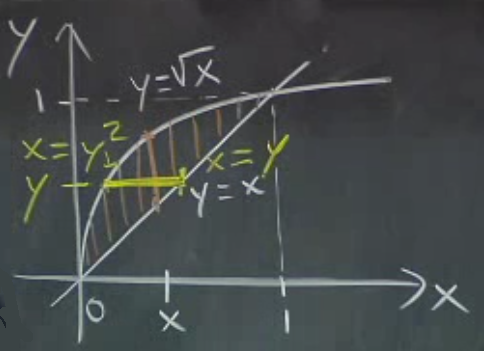 y
y=√x
1
x=y²
x=y
y
y=x
0
x
1
x